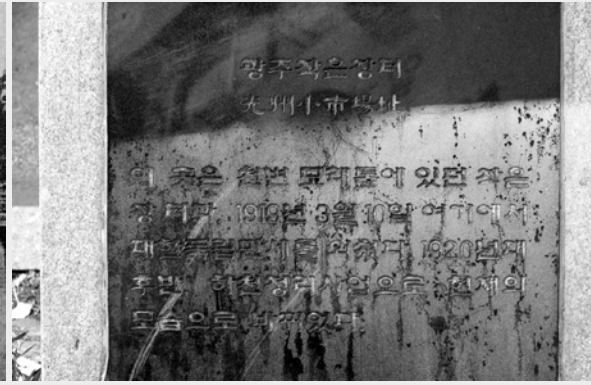 광주작은장터
光州小市場址
이 곳은 천변 모래톱에 있던 작은
장터다. 1919년 3월 10일 여기에서
대한독립만세를 외쳤다. 1920년대
후반 하천정리사업으로 현재의
모습으로 바뀌었다.